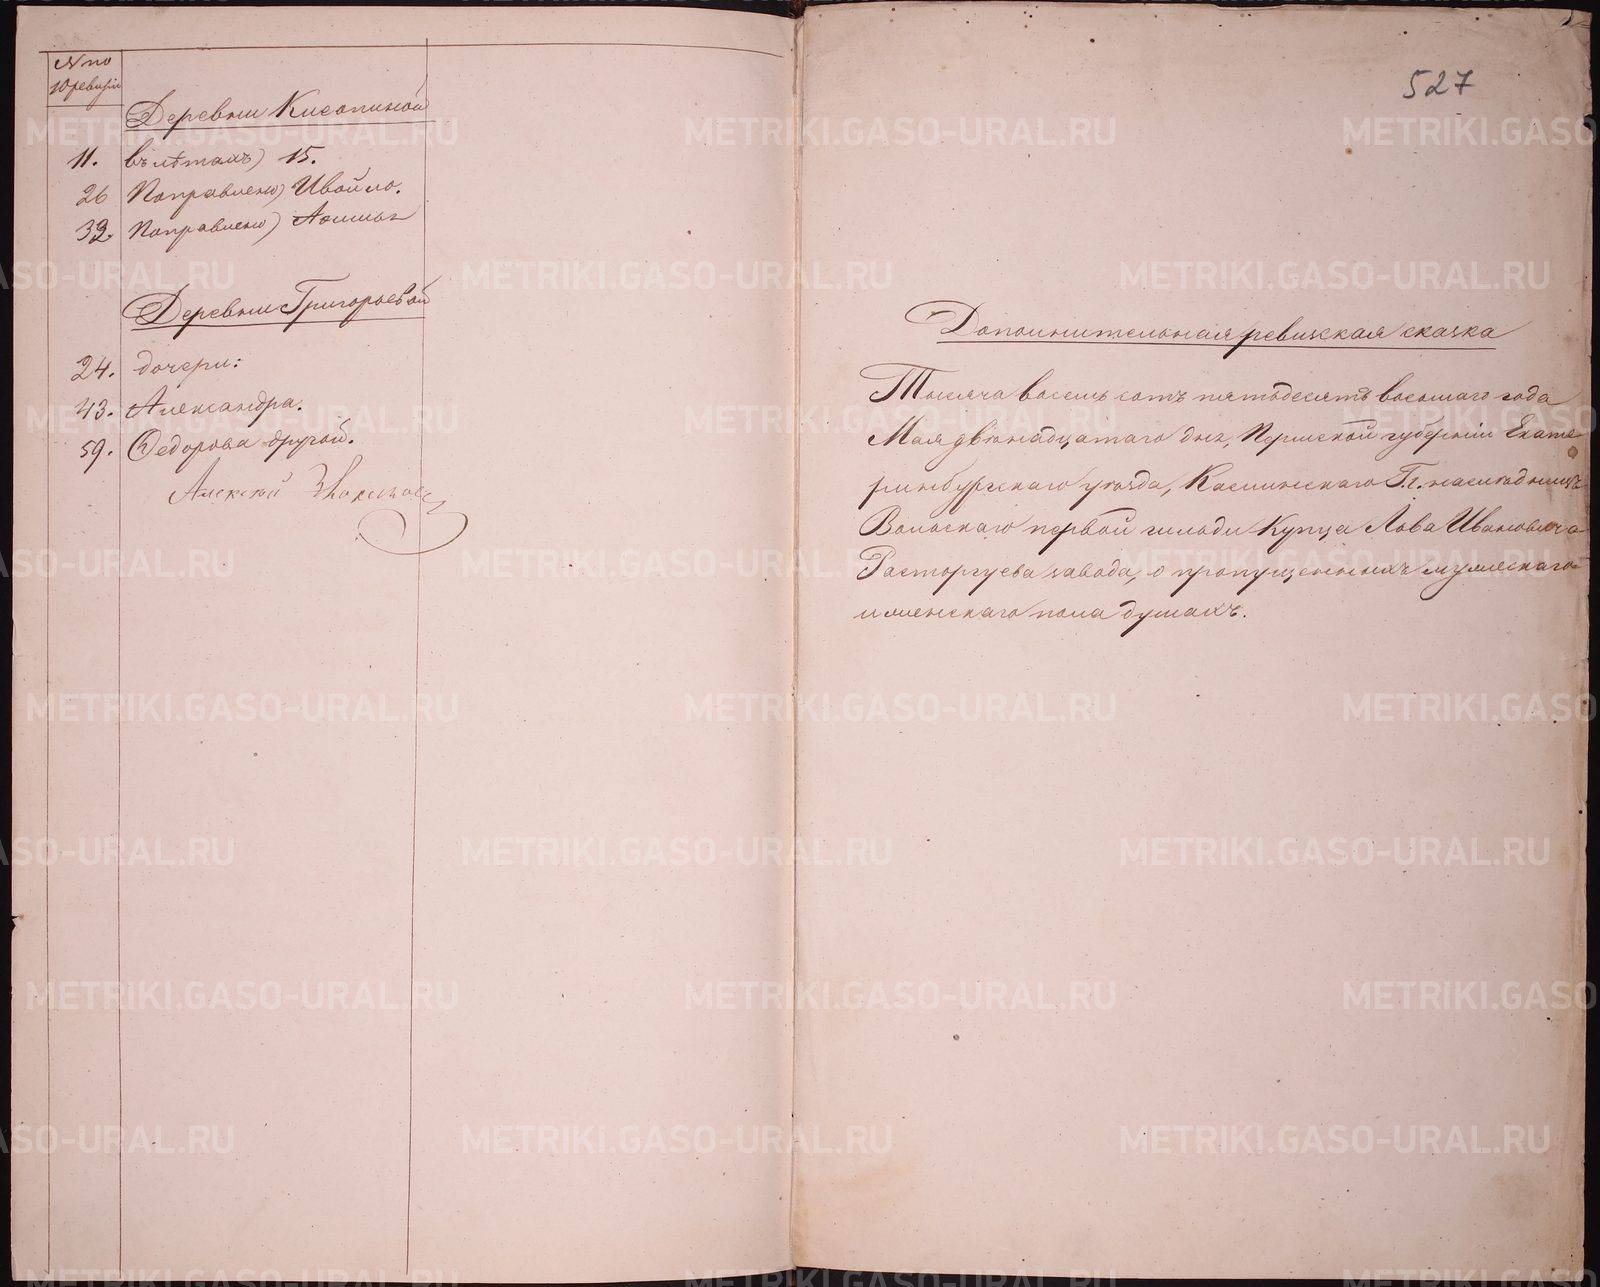 № по
10 ревизіи
Деревни Кисопиной
11. въ лѣтахъ) 15.
26 Поправлено) Ивойло.
32. Поправлено)
Деревни Григорьевой
24. дочери:
43. Александра.
59. Федорова другой.
Алексѣй
527
Дополнительная ревизская сказка
Тысяча восемь сотъ пятьдесятъ восьмаго года
Мая двѣнадцатаго дня, Пермской губерніи Екате-
ринбургскаго уѣзда, Каслинскаго Г.г. наслѣдниковъ
Вольскаго первой гильди Купца Льва Ивановича
Расторгуева завода, о пропущенныхъ мужескаго
и женскаго пола душахъ.
METRIKI.GASO-URAL.RU